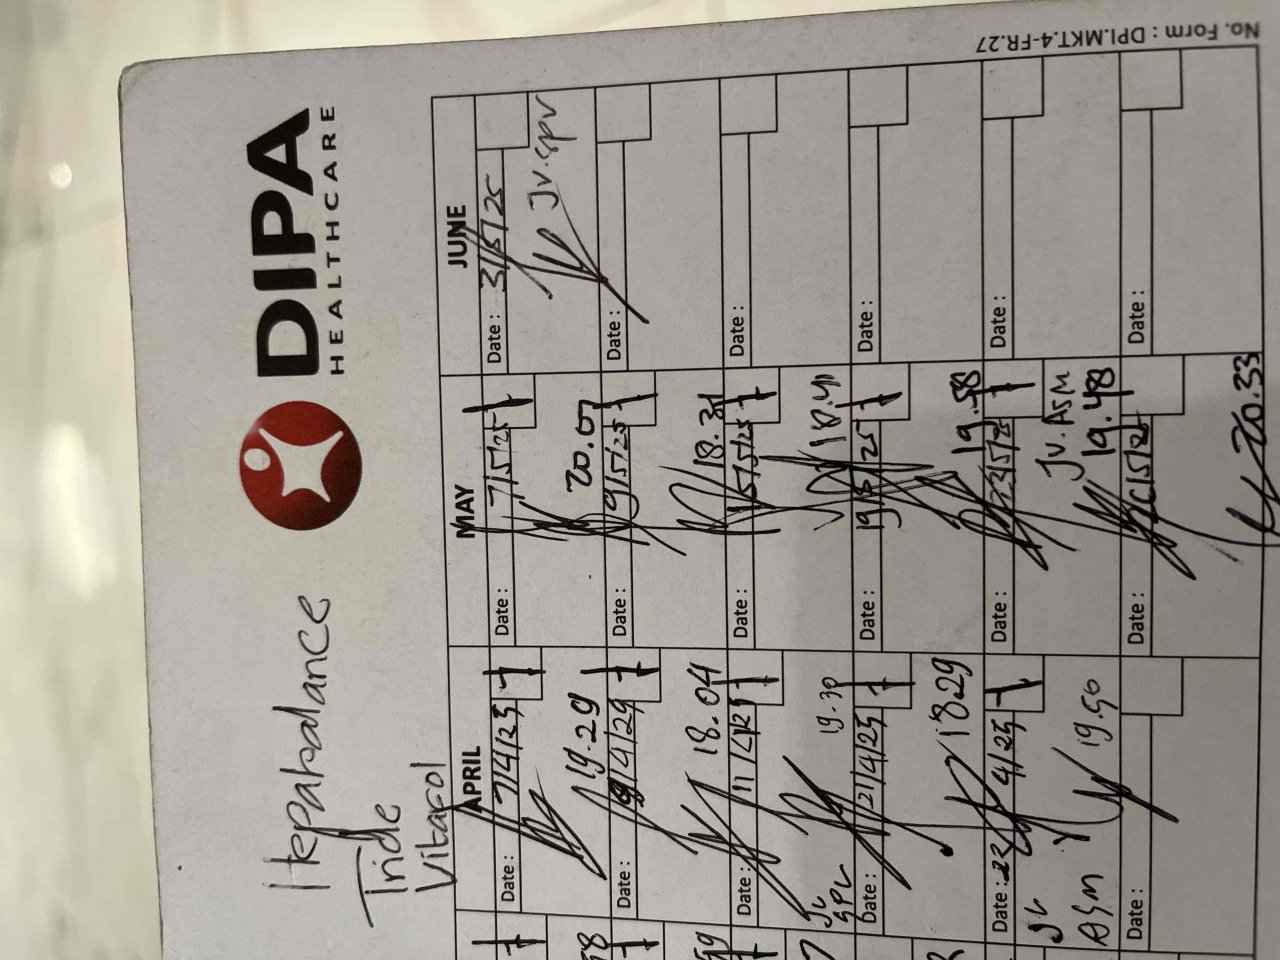 No. Form : DPI.MKT.4-FR.27
DIPA
HEALTHCARE
Hepabalance
Tride
Vitacol
APRIL
Date : 7/4/25
19.29
Date : 9/4/25
18.04
Date : 11/4/25
19.30
Jv
SPV
Date : 21/4/25
18.29
Date : 23/4/25
19.50
Jv
ASM
Date :
MAY
Date : 7/5/25
20.07
Date : 9/5/25
18.31
Date : 15/5/25
18.41
Date : 19/5/25
19.58
Date : 23/5/25
Jv. ASM
19.48
Date :
20.33
JUNE
Date : 31/5/25
Jv. SPV
Date :
Date :
Date :
Date :
Date :